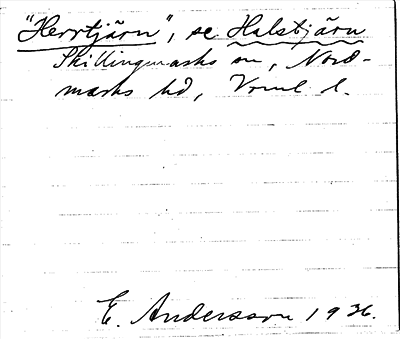 "Herrtjärn", se Halsbjärn
Skillingmarks sn, Nord-
marks hd, Vrml. l.
E. Andersson 1936.